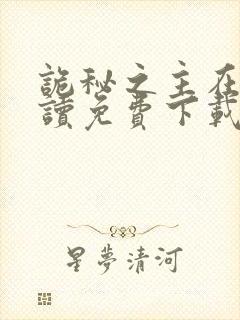 詭秘之主在
讀免費下載
星夢清河